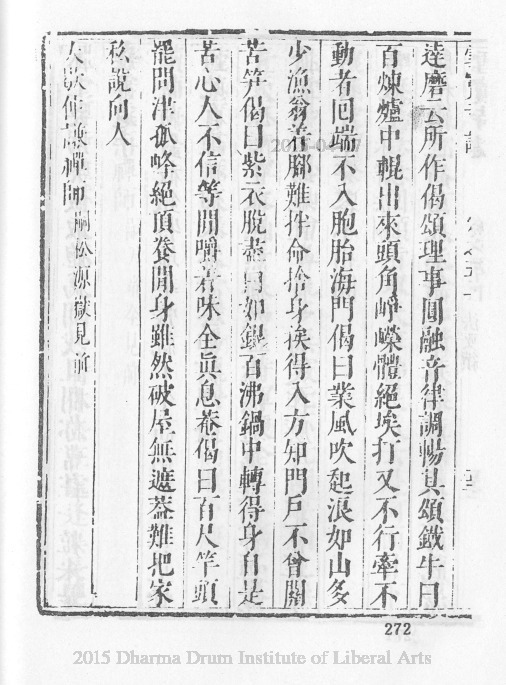 達磨云所作偈頌理事圓融音律調暢其頌鐵牛曰
百煉爐中輥出來頭角崢嶸體絕埃打又不行牽不
動者回端不入胞胎海門偈曰業風吹起浪如山多
少漁翁著腳難拌命捨身挨得入方知門戶不曾關
苦笋偈曰紫衣脫盡白如銀百沸鍋中轉得身自是
苦心人不信等閒嚼著味全真息菴偈曰百尺竿頭
罷問津孤峰絕頂養閒身雖然破屋無遮蓋難把家
私說向人
大歇仲謙禪師 嗣松源嶽見前
272
2015 Dharma Drum Institute of Liberal Arts